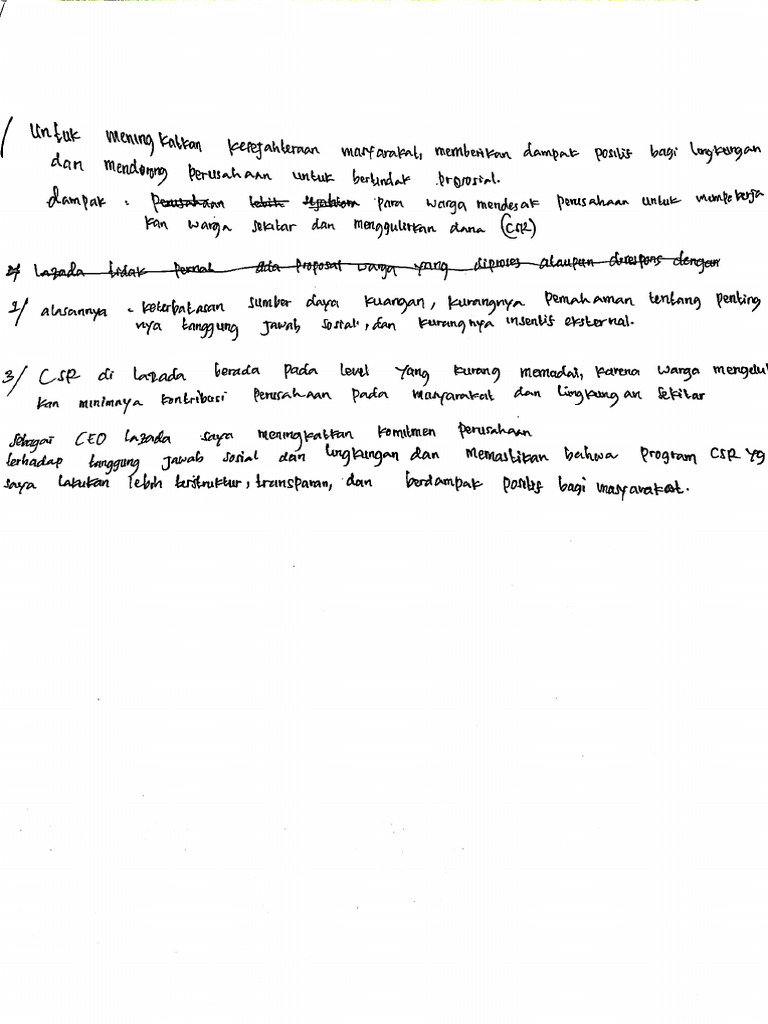 1/ Untuk meningkatkan kesejahteraan masyarakat, memberikan dampak positif bagi lingkungan
dan mendorong perusahaan untuk bertindak prososial.
dampak : Perusahaan lebih sejahtera para warga mendesak perusahaan untuk mempekerja
kan warga sekitar dan menggulirkan dana (CSR)
2/ Lazada tidak pernah ada proposal warga yang diproses ataupun direspons dengan
2/ alasannya : keterbatasan sumber daya kuangan, kurangnya pemahaman tentang penting
nya tanggung jawab sosial, dan kurangnya insentif eksternal.
3/ CSR di Lazada berada pada level yang kurang memadai, karena warga mengeluh
kan minimnya kontribusi perusahaan pada masyarakat dan lingkungan sekitar
sebagai CEO Lazada saya meningkatkan komitmen perusahaan
terhadap tanggung jawab sosial dan lingkungan dan memastikan bahwa program CSR yg
saya lakukan lebih terstruktur, transparan, dan berdampak positif bagi masyarakat.